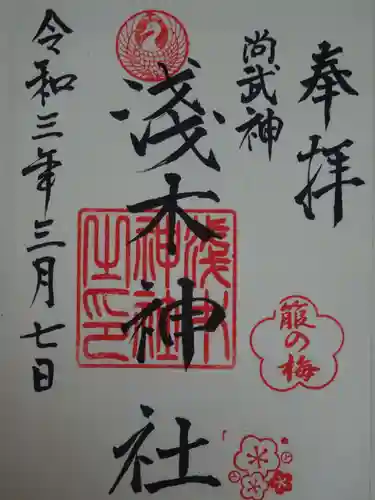 奉拝
尚武神
淺木神社
令和三年三月七日
淺木神社之印
箙の梅